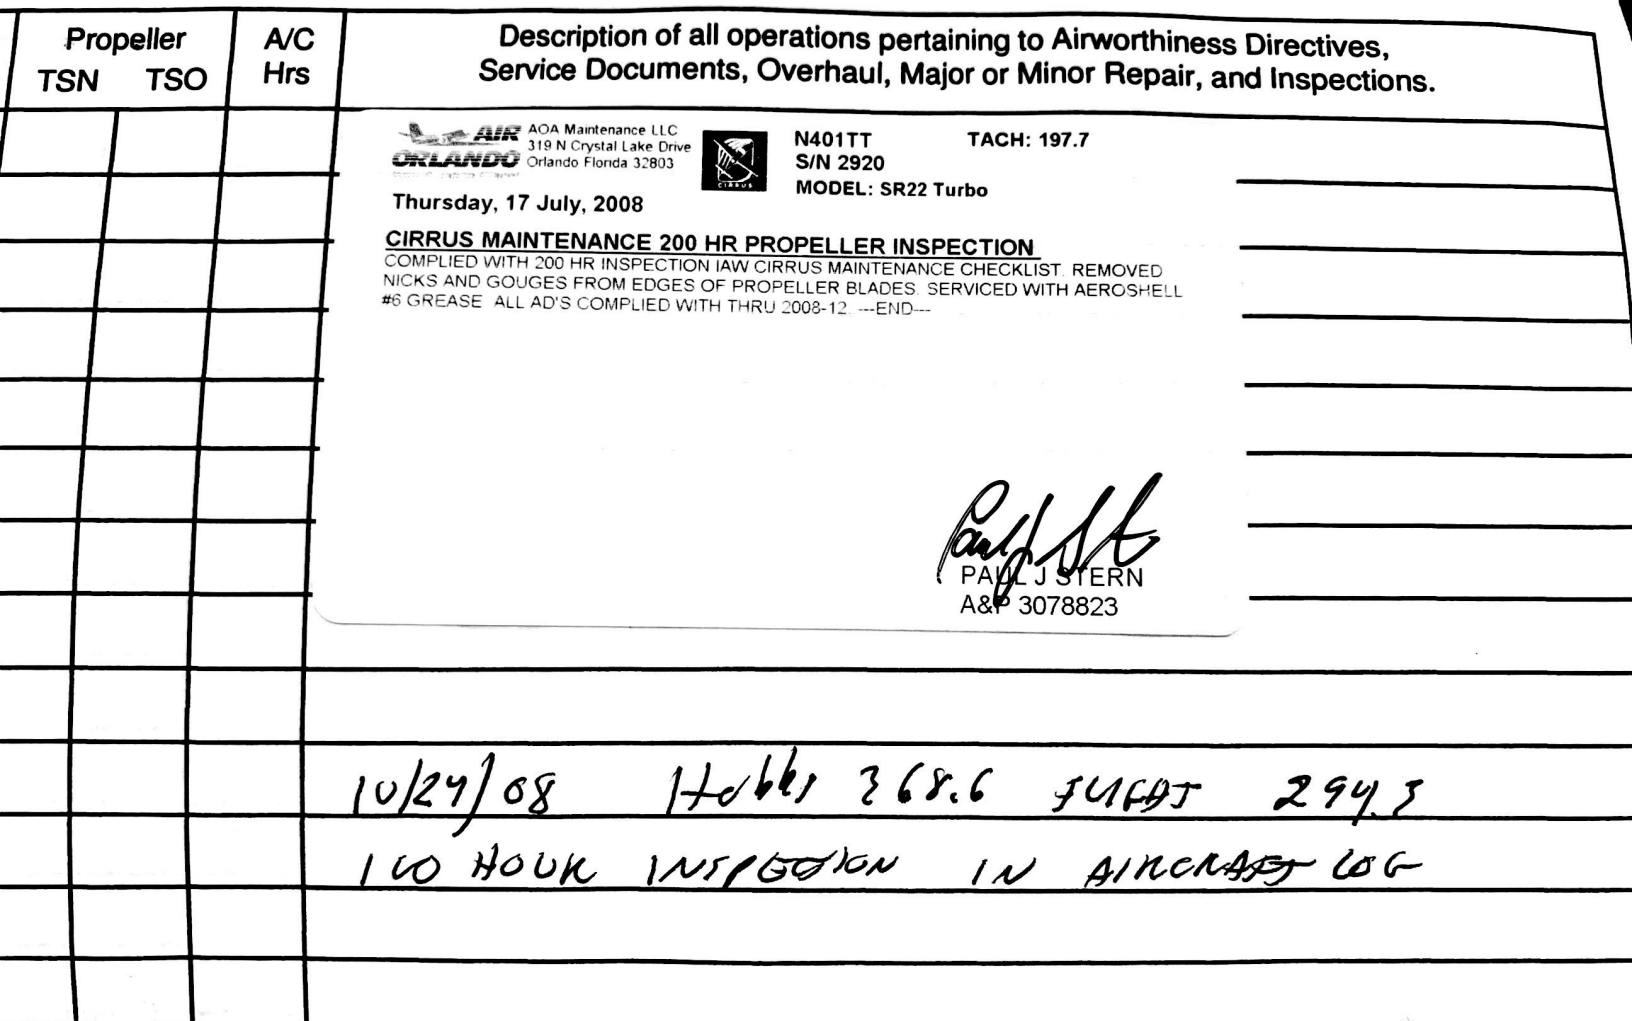 Propeller
TSN TSO
A/C
Hrs
Description of all operations pertaining to Airworthiness Directives,
Service Documents, Overhaul, Major or Minor Repair, and Inspections.
AIR
ORLANDO
AOA Maintenance LLC
319 N Crystal Lake Drive
Orlando Florida 32803
CIRRUS
N401TT TACH: 197.7
S/N 2920
MODEL: SR22 Turbo
Thursday, 17 July, 2008
CIRRUS MAINTENANCE 200 HR PROPELLER INSPECTION
COMPLIED WITH 200 HR INSPECTION IAW CIRRUS MAINTENANCE CHECKLIST. REMOVED
NICKS AND GOUGES FROM EDGES OF PROPELLER BLADES. SERVICED WITH AEROSHELL
#6 GREASE ALL AD'S COMPLIED WITH THRU 2008-12. ---END---
PAUL J STERN
A&P 3078823
10/24/08 Hobbs 368.6 FLIGHT 294.3
100 HOUR INSPECTION IN AIRCRAFT LOG